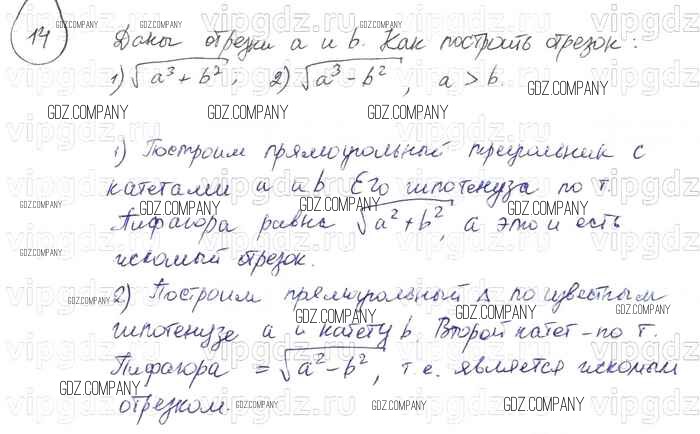 14 Даны отрезки a и b. Как построить отрезок:
1) √a³ + b² ; 2) √a³ - b² , a > b.
1) Построим прямоугольный треугольник с
катетами a и b. Его гипотенуза по т.
Пифагора равна √a² + b², а это и есть
искомый отрезок.
2) Построим прямоугольный Δ по известным
гипотенузе a и катету b. Второй катет - по т.
Пифагора = √a² - b², т.е. является искомым
отрезком.